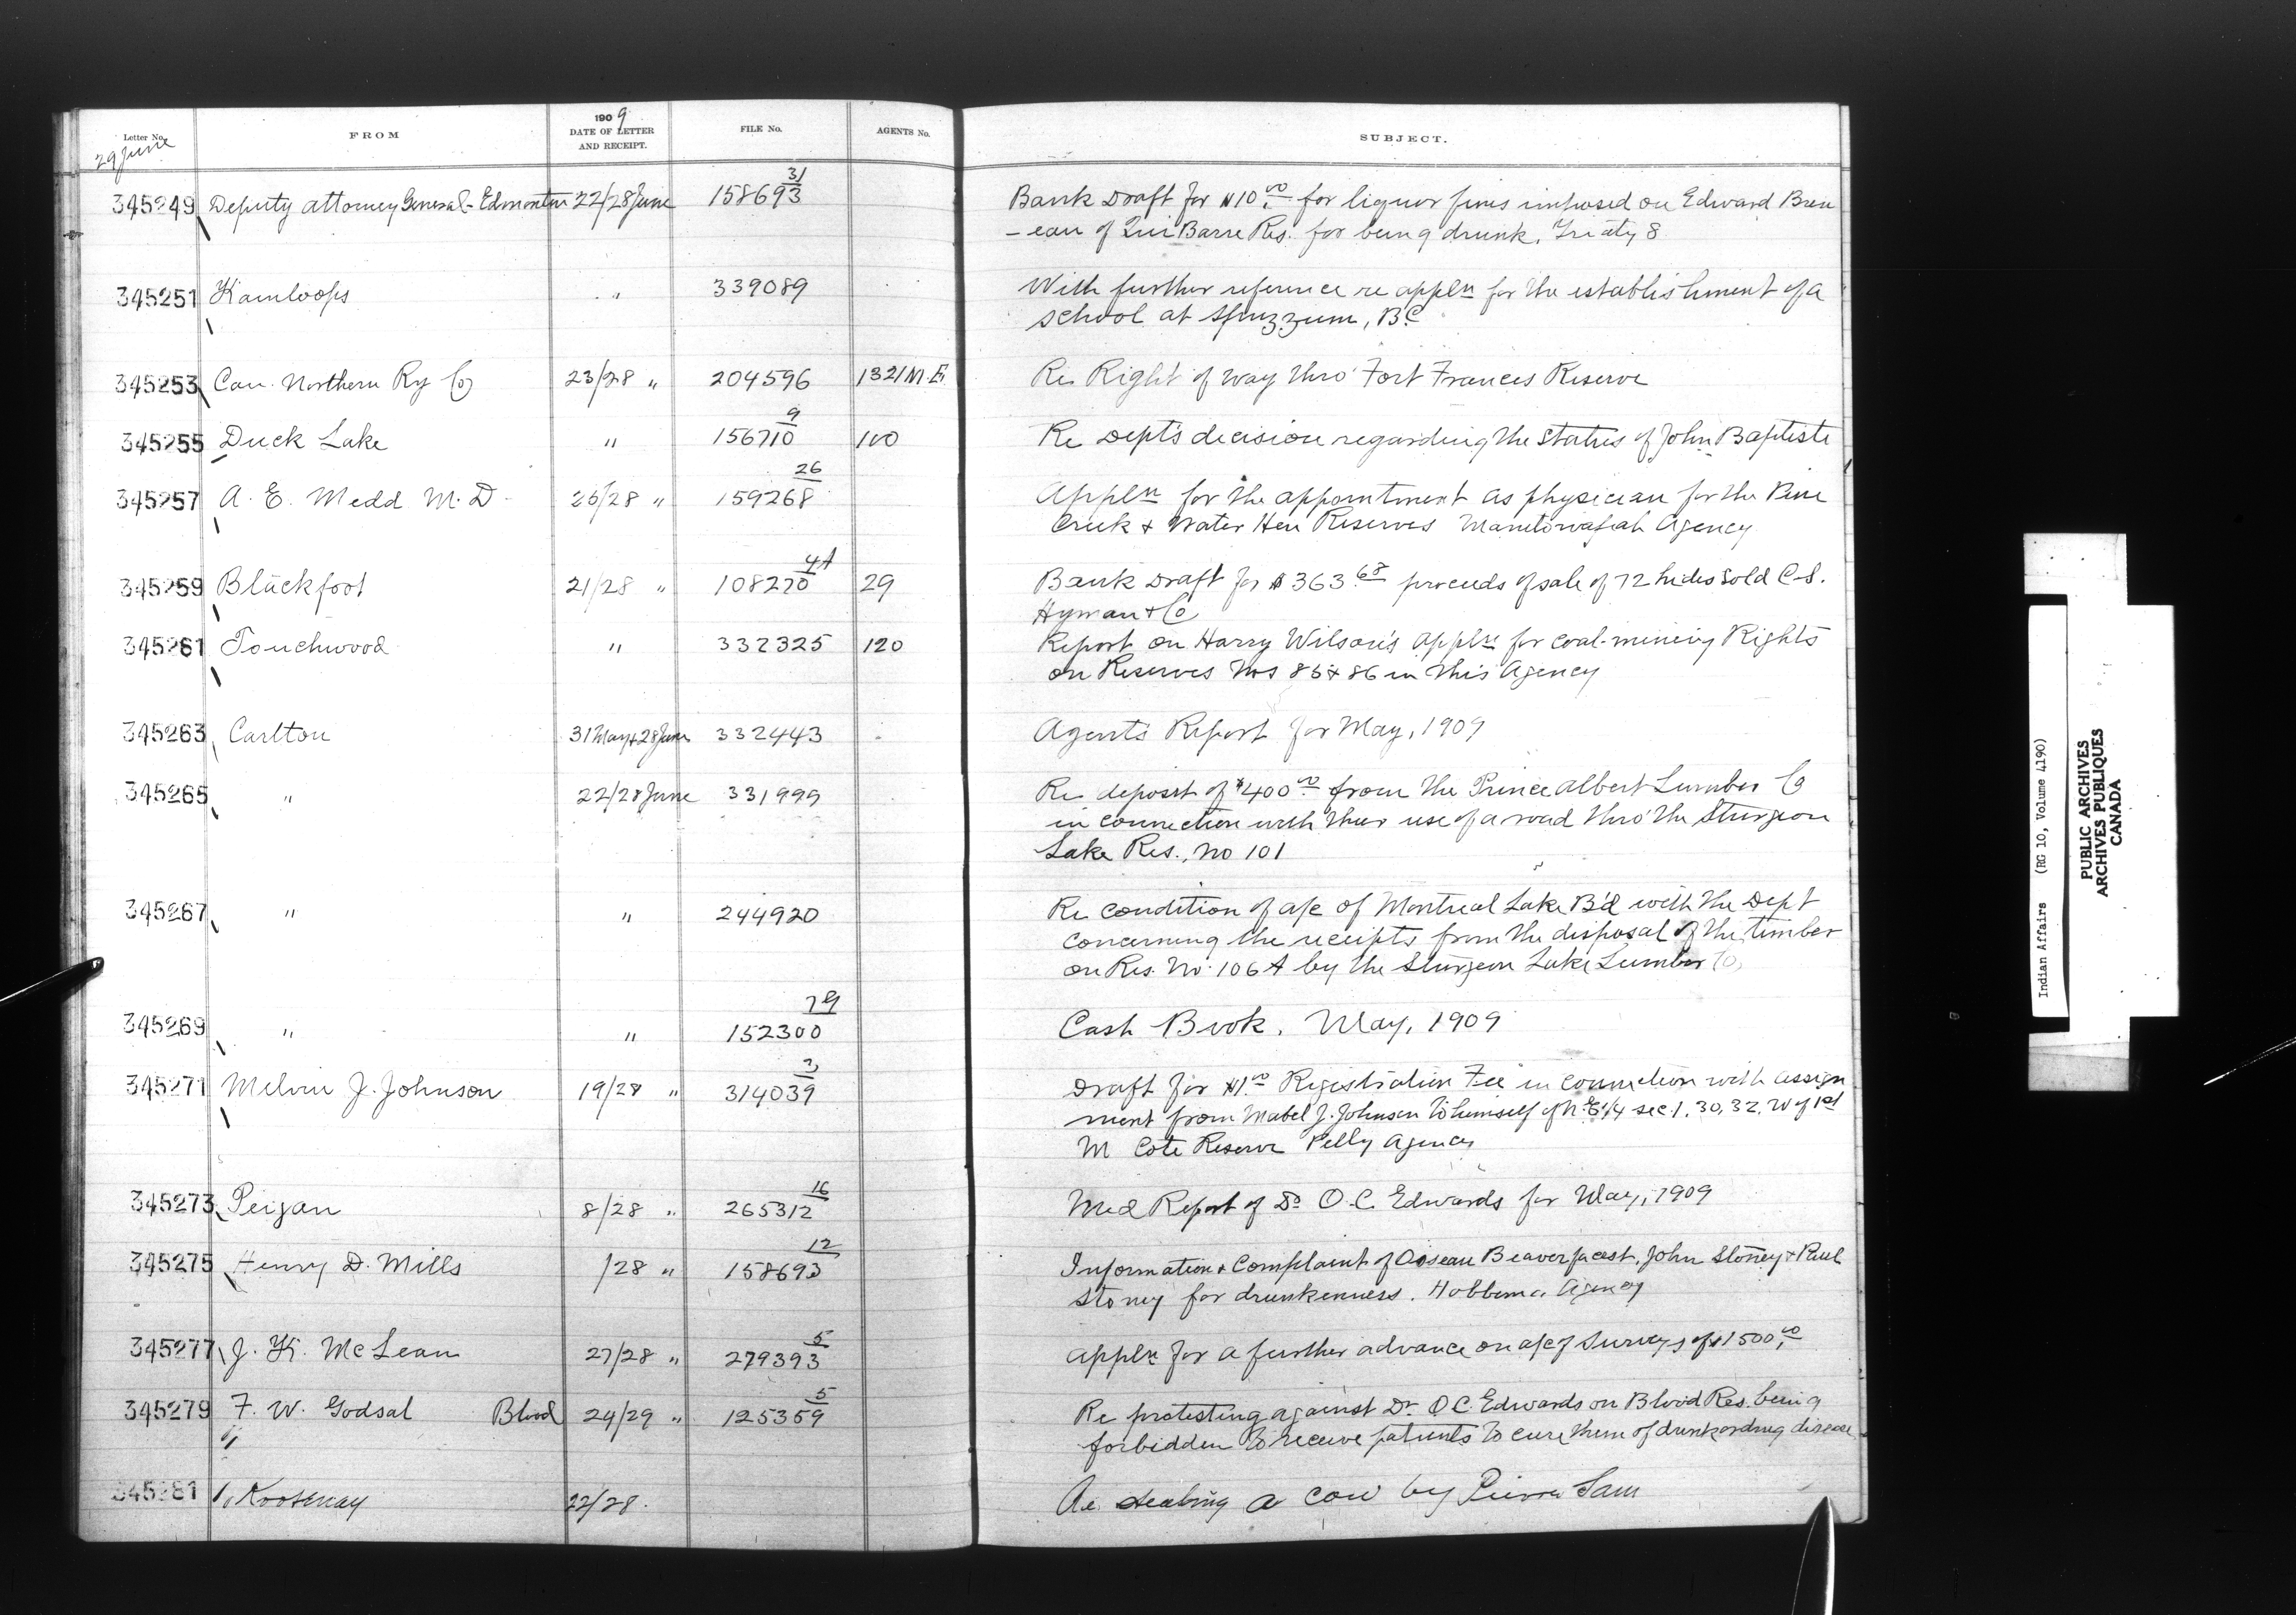 Letter No. FROM 1909 DATE OF LETTER AND RECEIPT. FILE No. AGENTS No. SUBJECT.
29 June
345249 Deputy attorney General - Edmonton 22/28 June 158693 31 Bank Draft for $10.00 for liquor fines imposed on Edward Brun
- eau of Barre Res. for being drunk. Treaty 8
345251 Kamloops " 339089 With further reference re appln for the establishment of a
school at Spuzzum, B.C
345253 Can. Northern Ry Co 23/28 " 204596 1321 M.E. Re Right of way thro' Fort Frances Reserve
345255 Duck Lake " 156710 9 100 Re Dept's decision regarding the status of John Baptiste
345257 A. E. Medd M.D. 25/28 " 159268 26 Appln for the appointment as physician for the Pine
Creek & Water Hen Reserves Manitowapah Agency
345259 Blackfoot 21/28 " 108270 4A 29 Bank Draft for $363.68 proceeds of sale of 72 hides sold C.S.
Hyman & Co
345261 Touchwood " 332325 120 Report on Harry Wilson's appln for coal-mining Rights
on Reserves Nos 85 & 86 in this Agency
345263 Carlton 31 May & 28 June 332443 Agent's Report for May, 1909
345265 " 22/28 June 331999 Re deposit of $400.00 from the Prince Albert Lumber Co
in connection with their use of a road thro' the Sturgeon
Lake Res., No 101
345267 " " 244920 Re condition of a/c of Montreal Lake B'd with the Dept
concerning the receipts from the disposal of the timber
on Res. No. 106A by the Sturgeon Lake Lumber Co,
345269 " " 152300 7G Cash Book. May, 1909
345271 Melvin J. Johnson 19/28 " 314039 3 Draft for $1.00 Registration Fee in connection with assign
ment from Mabel J. Johnson to himself of N.E 1/4 sec. 1, 30, 32, W of 1st
M Cote Reserve Pelly Agency
345273 Peigan 8/28 " 265312 16 Med Report of Dr O.C. Edwards for May, 1909
345275 Henry D. Mills /28 " 158693 12 Information & Complaint of Beaverfacest, John Stoney & Paul
Stoney for drunkenness. Hobbema Agency
345277 J. K. McLean 27/28 " 279393 5 Appln for a further advance on a/c of Surveys of $1500.00
345279 F. W. Godsal Blood 24/29 " 125359 5 Re protesting against Dr O.C. Edwards on Blood Res. being
forbidden to receive patients to cure them of drunk or drug disease
345281 Kootenay 22/28. Re stealing a cow by Pierre Sam
Indian Affairs (RG 10, Volume 4190)
PUBLIC ARCHIVES
ARCHIVES PUBLIQUES
CANADA